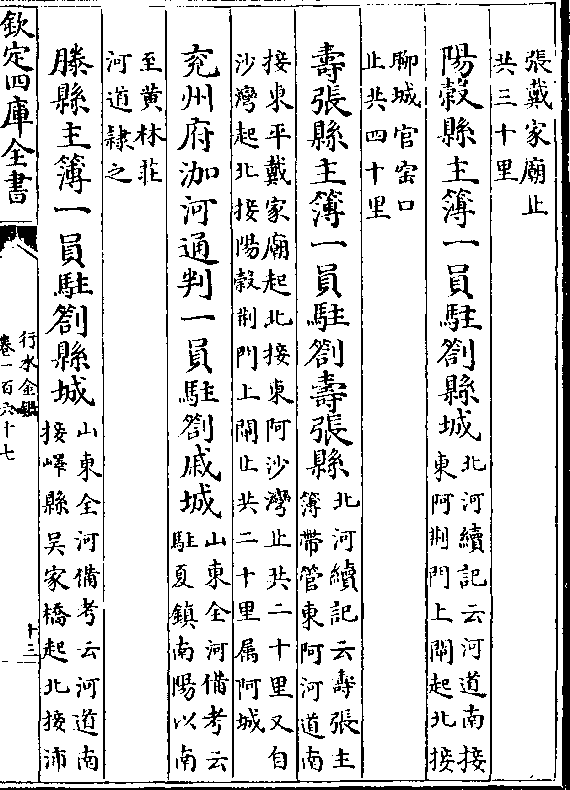 張戴家廟止
共三十里
陽穀縣主簿一員駐劄縣城
北河續記云河道南接
東阿荆門上閘起北接
聊城官窑口
止共四十里
壽張縣主簿一員駐劄壽張縣
北河續記云壽張主
簿帶管東阿河道南
接東平戴家廟起北接東阿沙灣止共二十里又自
沙灣起北接陽穀荆門上閘止共二十里屬阿城
兖州府泇河通判一員駐劄戚城
山東全河備考云
駐夏鎮南陽以南
至黄林莊
河道隷之
滕縣主簿一員駐劄縣城
山東全河備考云河道南
接嶧縣吴家橋起北接沛
欽定四庫全書
行水金鑑
卷一百六十七
十三